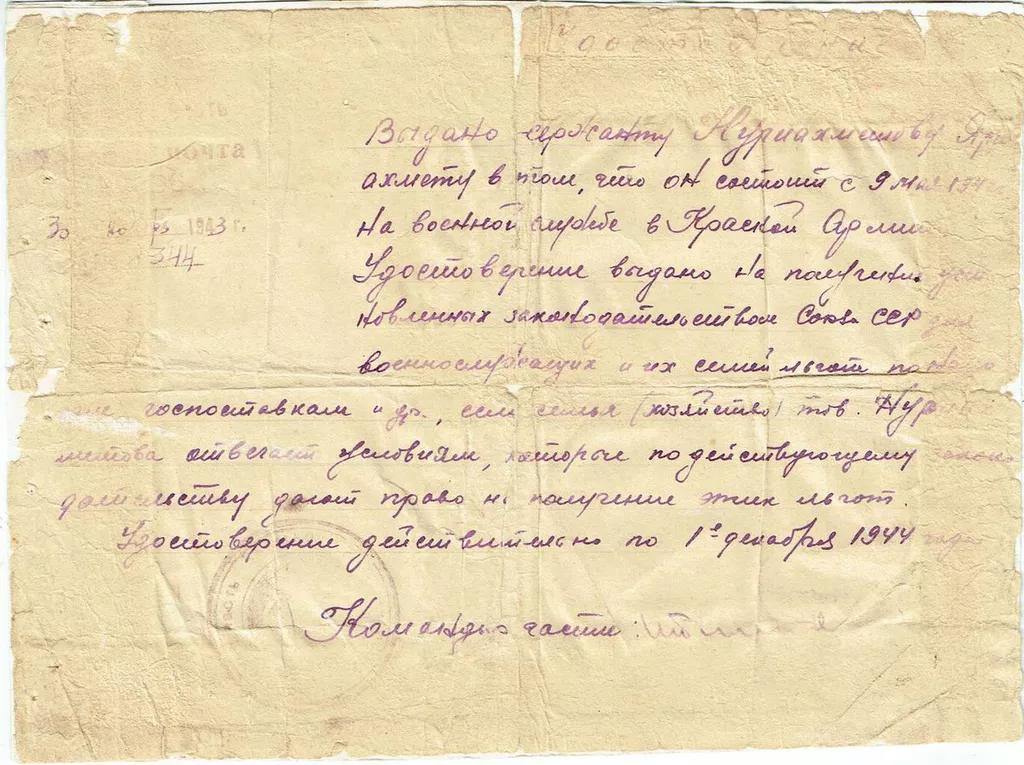 почта
Выдано сержанту Нуриахметову Яра
ахмету в том, что он состоит с 9 мая 194
30 но 1943 г.
на военной службе в Красной Армии
344
Удостоверение выдано на получение уста
новленных законодательством Союза ССР для
военнослужащих и их семей льгот по нало
гам, госпоставкам и др., если семья (хозяйство) тов. Нуриах
метова отвечает условиям, которые по действующему законо
дательству дают право на получение этих льгот.
Удостоверение действительно по 1е декабря 1944 года
часть
Командир части: